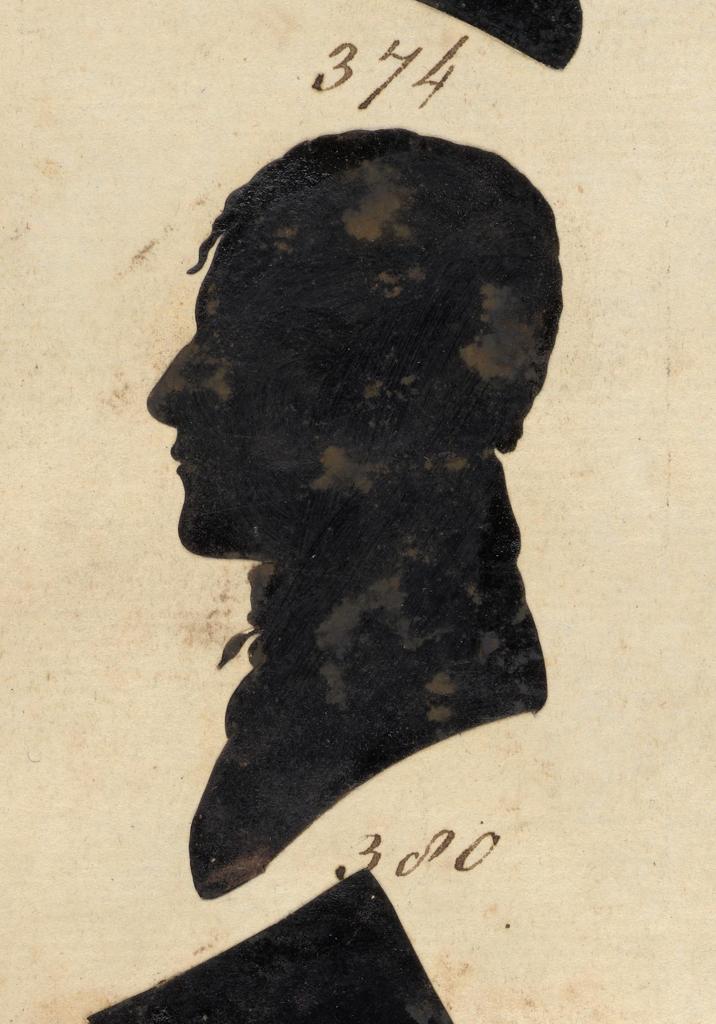 374
380